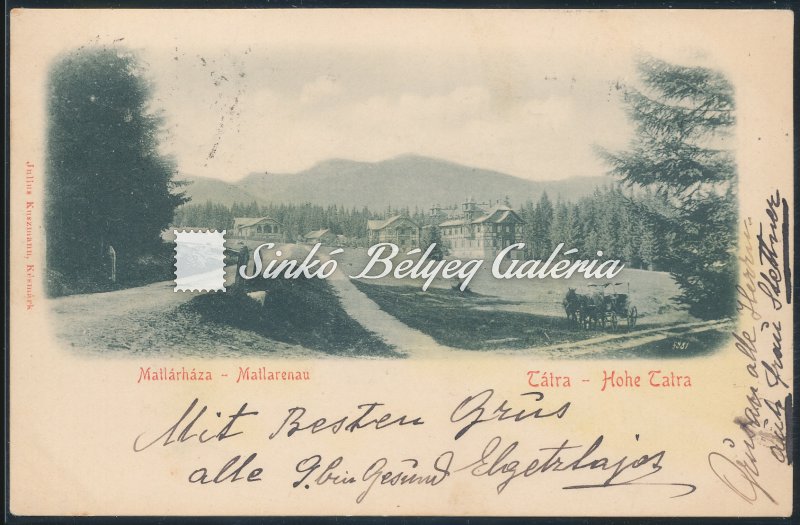 Julius Kuszmann, Késmárk
Sinkó Bélyeg Galéria
5281
Matlárháza - Matlarenau
Tátra - Hohe Tatra
Mit Besten Grüs
alle Gesund
alle Herrn
frau Stettner